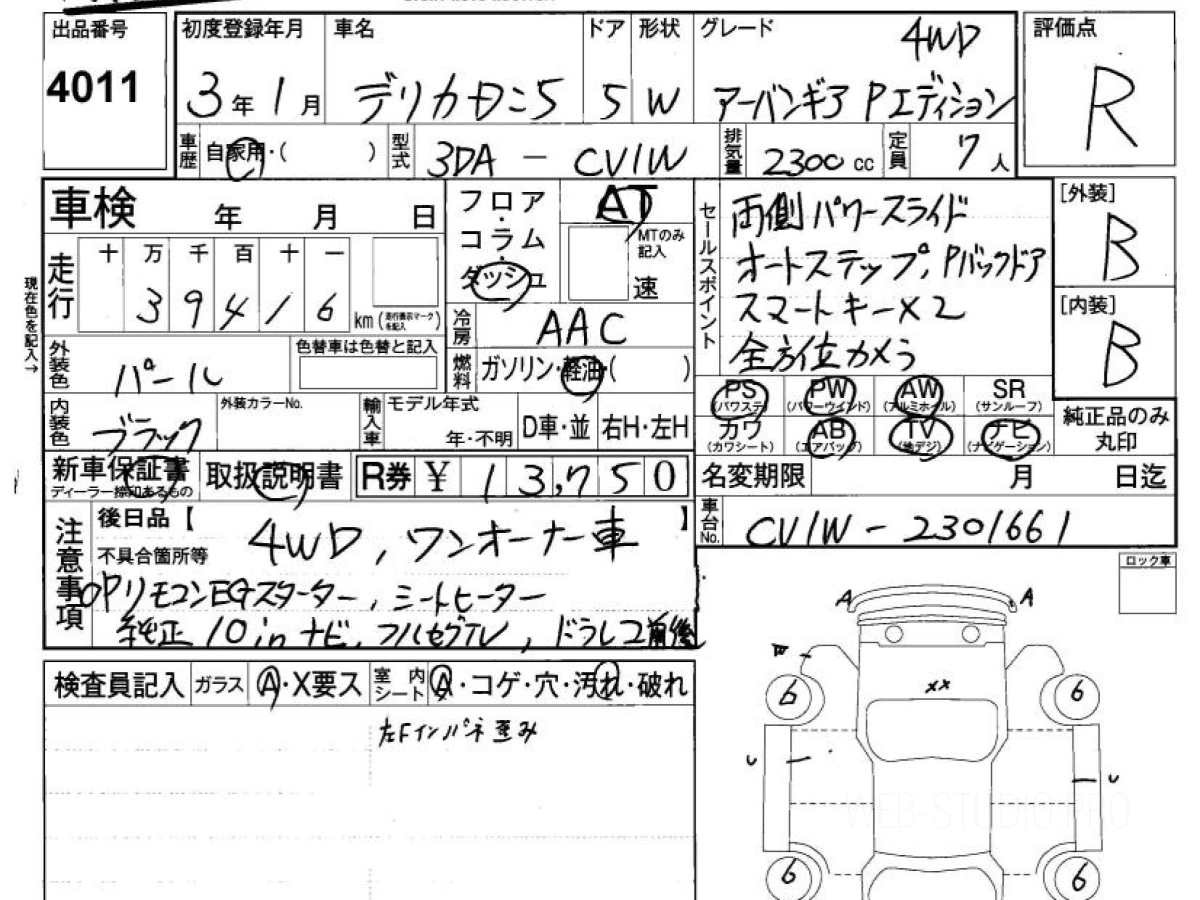 出品番号
4011
初度登録年月
3年1月
車名
デリカD:5
ドア
5
形状
W
グレード
4WD
アーバンギア Pエディション
評価点
R
車歴
自家用・( )
型式
3DA - CV1W
排気量
2300cc
定員
7人
車検
年 月 日
フロア
・
コラム
・
ダッシュ
AT
MTのみ
記入
速
セールスポイント
両側パワースライド
オートステップ, Pバックドア
スマートキー×2
全方位カメラ
[外装]
B
[内装]
B
走行
十 万 千 百 十 一
3 9 4 1 6
km
(走行表示マークを記入)
現在色を記入→
冷房
AAC
外装色
パール
色替車は色替と記入
燃料
ガソリン・軽油・( )
内装色
ブラック
外装カラーNo.
輸入車
モデル年式
年・不明
D車・並
右H・左H
PS
(パワステ)
PW
(パワーウインド)
AW
(アルミホイル)
SR
(サンルーフ)
カワ
(カワシート)
AB
(エアバッグ)
TV
(地デジ)
ナビ
(ナビゲーション)
純正品のみ
丸印
新車保証書
取扱説明書
R券 ¥ 13,750
名変期限
月 日迄
車台No.
CV1W - 2301661
注意事項
後日品【 】
4WD, ワンオーナー車
不具合箇所等
OPリモコンEGスターター, シートヒーター
純正10inナビ, フルセグTV, ドラレコ前後
ロック車
検査員記入
ガラス
A・X要ス
室内シート
A・コゲ・穴・汚れ・破れ
左Fインパネ歪み
A
A
xx
6
6
U
U
6
6
WEB-STUDIO.PRO